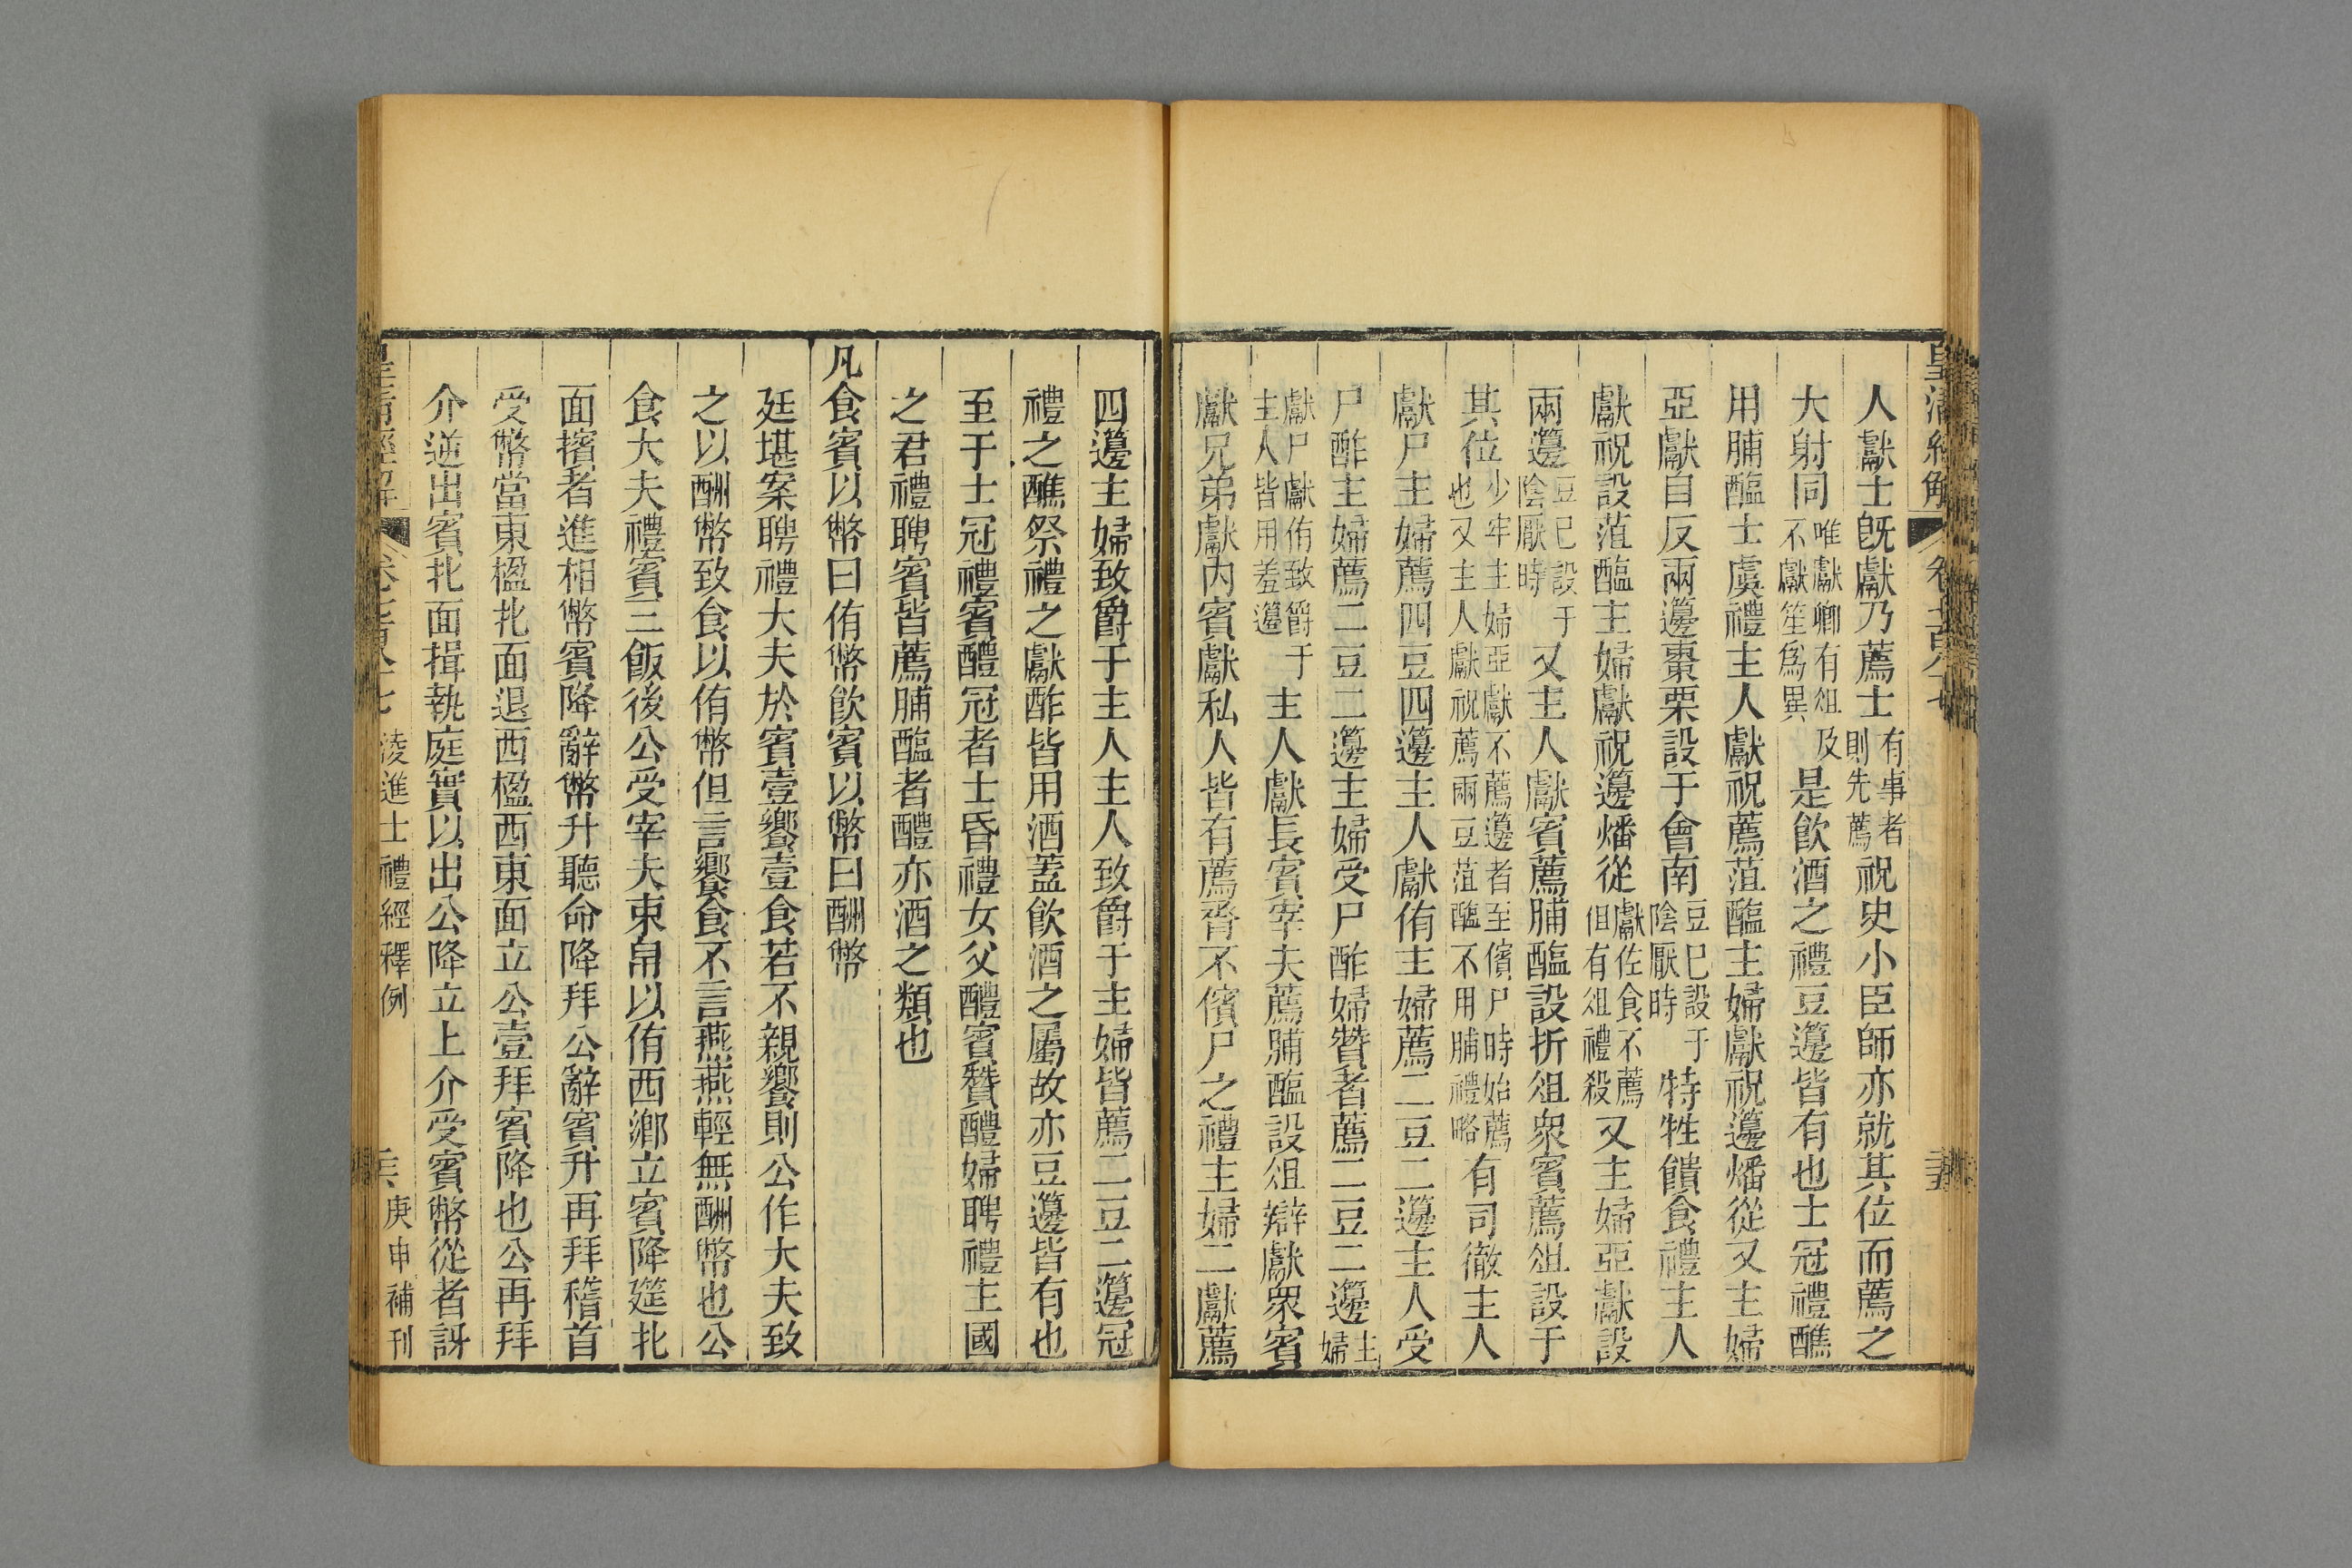 皇清經解 卷七百八十七
人獻士既獻乃薦士有事者則先薦祝史小臣師亦就其位而薦之
大射同唯獻卿有俎及不獻笙爲異是飲酒之禮豆籩皆有也士冠禮醮
用脯醢士虞禮主人獻祝薦菹醢主婦獻祝籩燔從又主婦
亞獻自反兩籩棗栗設于會南豆已設于陰厭時特牲饋食禮主人
獻祝設菹醢主婦獻祝籩燔從獻佐食不薦但有俎禮殺又主婦亞獻設
兩籩豆已設于陰厭時又主人獻賓薦脯醢設折俎眾賓薦俎設于
其位少牢主婦亞獻不薦籩者至儐尸時始薦也又主人獻祝薦兩豆菹醢不用脯禮略有司徹主人
獻尸主婦薦四豆四籩主人獻侑主婦薦二豆二籩主人受
尸酢主婦薦二豆二籩主婦受尸酢婦贊者薦二豆二籩主婦
獻尸獻侑致爵于主人皆用羞籩主人獻長賓宰夫薦脯醢設俎辯獻眾賓
獻兄弟獻內賓獻私人皆有薦脀不儐尸之禮主婦二獻薦
四籩主婦致爵于主人主人致爵于主婦皆薦二豆二籩冠
禮之醮祭禮之獻酢皆用酒蓋飲酒之屬故亦豆籩皆有也
至于士冠禮賓醴冠者士昏禮女父醴賓贊醴婦聘禮主國
之君禮聘賓皆薦脯醢者醴亦酒之類也
凡食賓以幣曰侑幣飲賓以幣曰酬幣
廷堪案聘禮大夫於賓壹饗壹食若不親饗則公作大夫致
之以酬幣致食以侑幣但言饗食不言燕燕輕無酬幣也公
食大夫禮賓三飯後公受宰夫束帛以侑西鄉立賓降筵北
面擯者進相幣賓降辭幣升聽命降拜公辭賓升再拜稽首
受幣當東楹北面退西楹西東面立公壹拜賓降也公再拜
介逆出賓北面揖執庭實以出公降立上介受賓幣從者訝
皇清經解 卷七百八十七 淩進士禮經釋例 庚申補刊